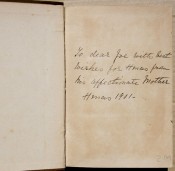 To dear Joe with best
wishes for Xmas from
his affectionate Mother
1901.